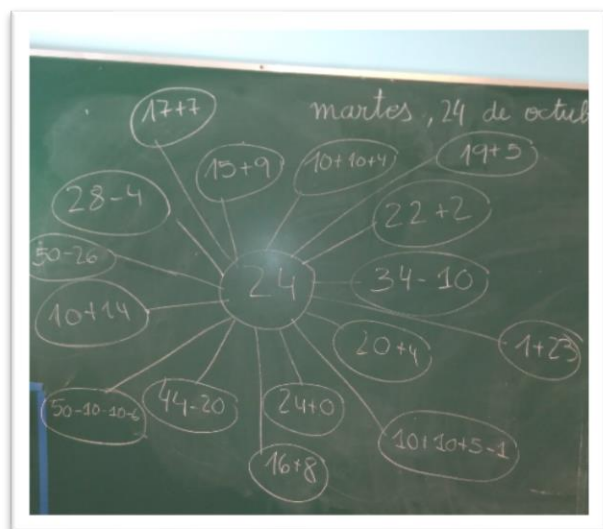 martes, 24 de octub
17+7
15+9
10+10+4
19+5
28-4
22+2
50-26
24
34-10
10+14
20+4
1+23
50-10-10-6
44-20
24+0
10+10+5-1
16+8